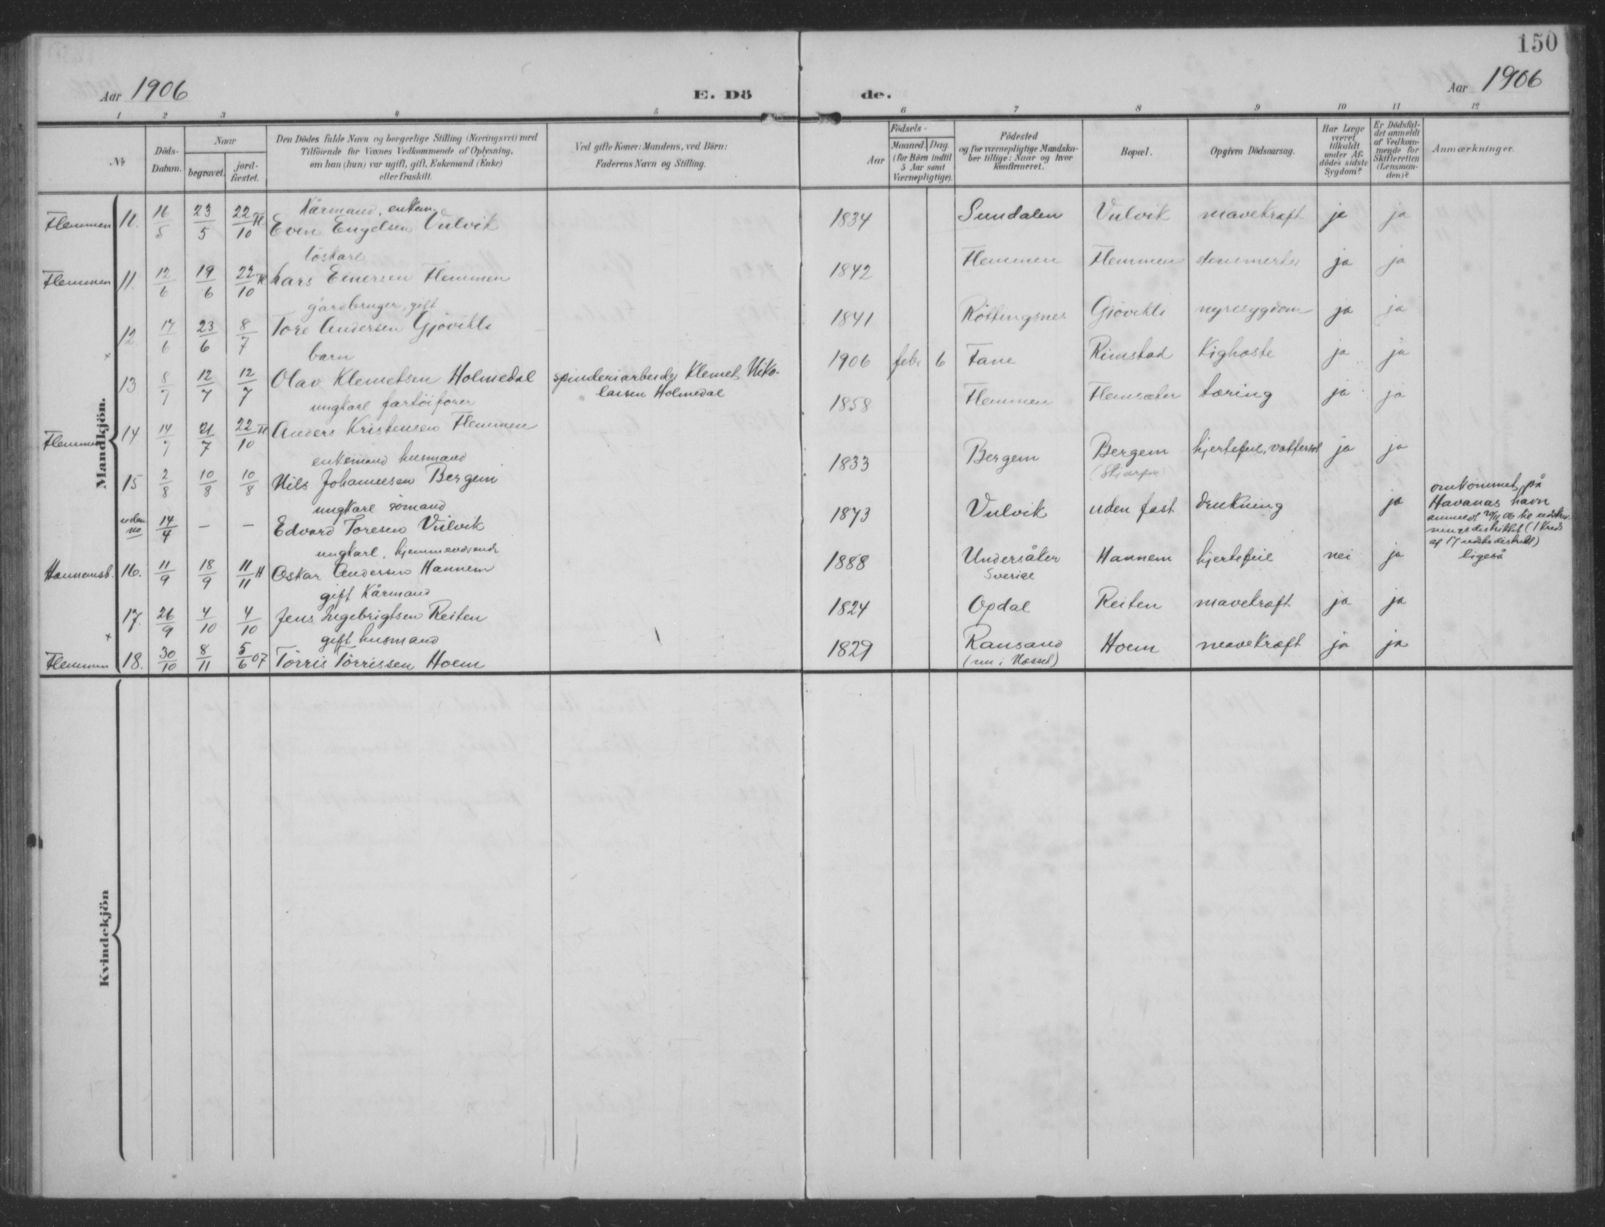 150
Aar 1906
E. Dö de.
Aar 1906
1 2 3 4 5 6 7 8 9 10 11 12
№
Döds-Datum.
Naar
begravet.
jord-fæstet.
Den Dödes fulde Navn og borgerlige Stilling (Næringsvei) med
Tilföiende for Voxnes Vedkommende af Oplysning,
om han (hun) var ugift, gift, Enkemand (Enke)
eller fraskilt.
Ved gifte Koner: Mandens, ved Börn:
Faderens Navn og Stilling.
Födsels-
Aar
Maaned, Dag
(for Börn indtil
5 Aar samt
Værnepligtige).
Födested
og for værnepligtige Mandska-
ber tillige: Naar og hvor
konfirmeret.
Bopæl.
Opgiven Dödsaarsag.
Har Læge
været
tilkaldt
under Af-
dödes sidste
Sygdom?
Er Dödsfal-
det anmeldt
af Vedkom-
mende for
Skifteretten
(Lensman-
den)?
Anmærkninger.
Mandkjön.
Kårmand, enkem.
Flemmen 10. 16/5 23/5 22/10 H Even Engelsen Vulvik 1834 Sundalen Vulvik mavekræft ja ja
löskarl
Flemmen 11. 12/6 19/6 22/10 H Lars Einersen Flemmen 1842 Flemmen Flemmen ja ja
gårdbruger, gift
12. 17/6 23/6 8/7 Tore Andersen Gjövikli 1841 Gjövikli nyresygdom ja ja
barn
13 8/7 12/7 12/7 Olav Klemetsen Holmedal spinderiarbeider Klemet Niko-
laisen Holmedal 1906 febr 6 Fane Rimstad Kighoste ja ja
ungkarl fartöiförer
Flemmen 14 14/7 21/7 22/10 H Anders Kristensen Flemmen 1858 Flemmen Flemsæter tæring ja ja
enkemand husmand
15 2/8 10/8 10/8 Nils Johannesen Bergem 1833 Bergem Bergem hjertefeil, ja ja
ungkarl sömand
uden no 14/4 – – Edvard Toresen Vulvik 1873 Vulvik uden fast drukning ja omkommet på
Havanas havn
ungkarl, hjemmeværende
Hannemsb. 16. 11/9 18/9 11/11 H Oskar Andersen Hannem 1888 Undersåker
Sverige Hannem hjertefeil nei ja ligeså
gift Kårmand
17. 26/9 4/10 4/10 Jens Ingebrigtsen Reiten 1824 Opdal Reiten mavekræft ja ja
gift husmand
Flemmen 18. 30/10 8/11 5/6 07 Törris Törrissen Hoem 1829 Ransand
(nu i Nesset) Hoem mavekræft ja ja
Kvindekjön